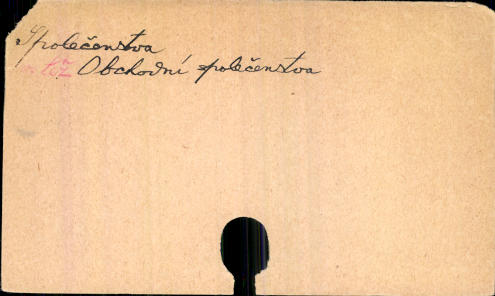 Společenstva
též Obchodní společenstva